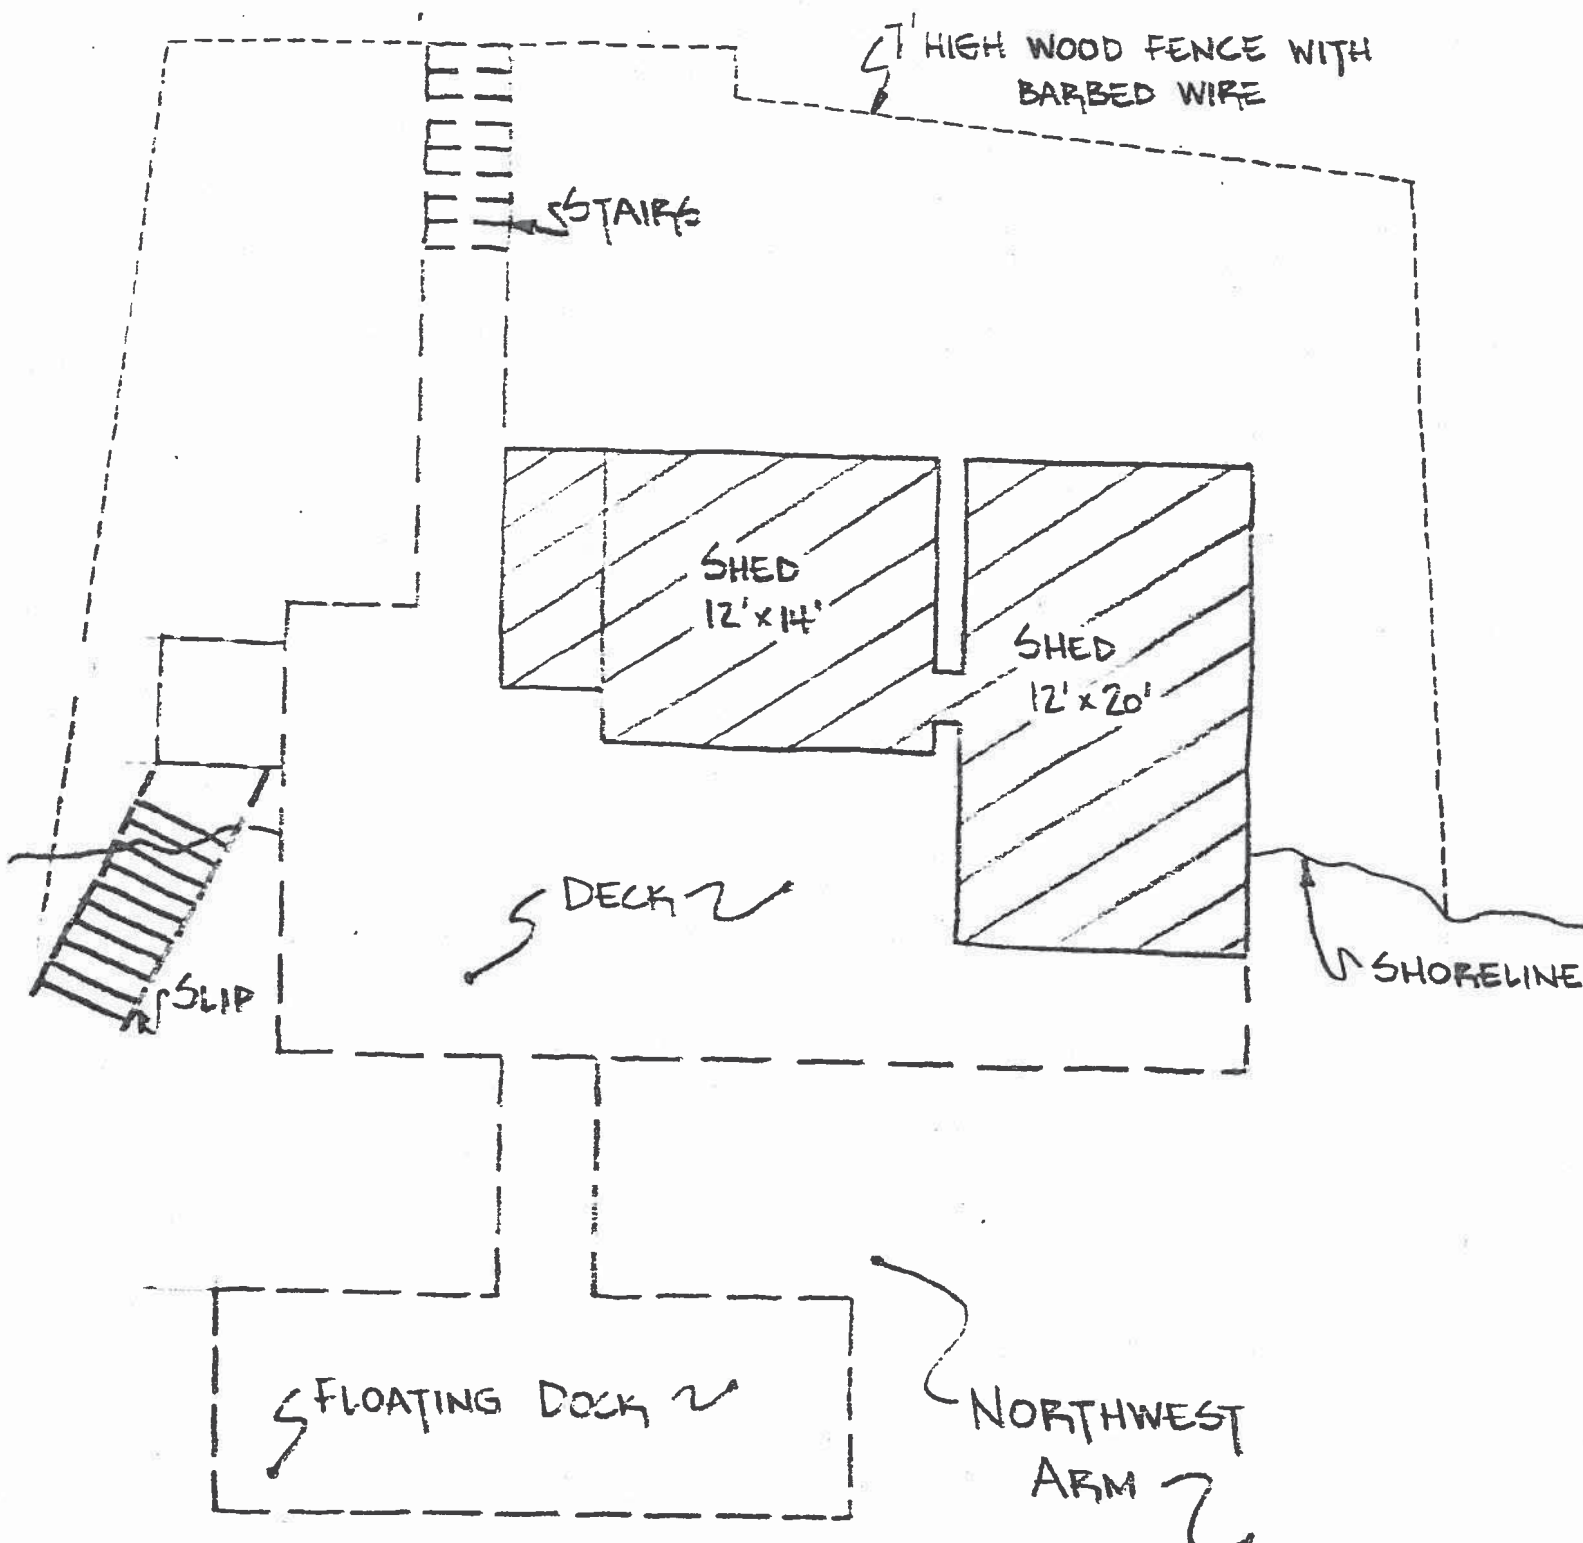 7' HIGH WOOD FENCE WITH
BARBED WIRE
STAIRS
SHED
12' x 14'
SHED
12' x 20'
DECK
SHORELINE
SLIP
FLOATING DOCK
NORTHWEST
ARM